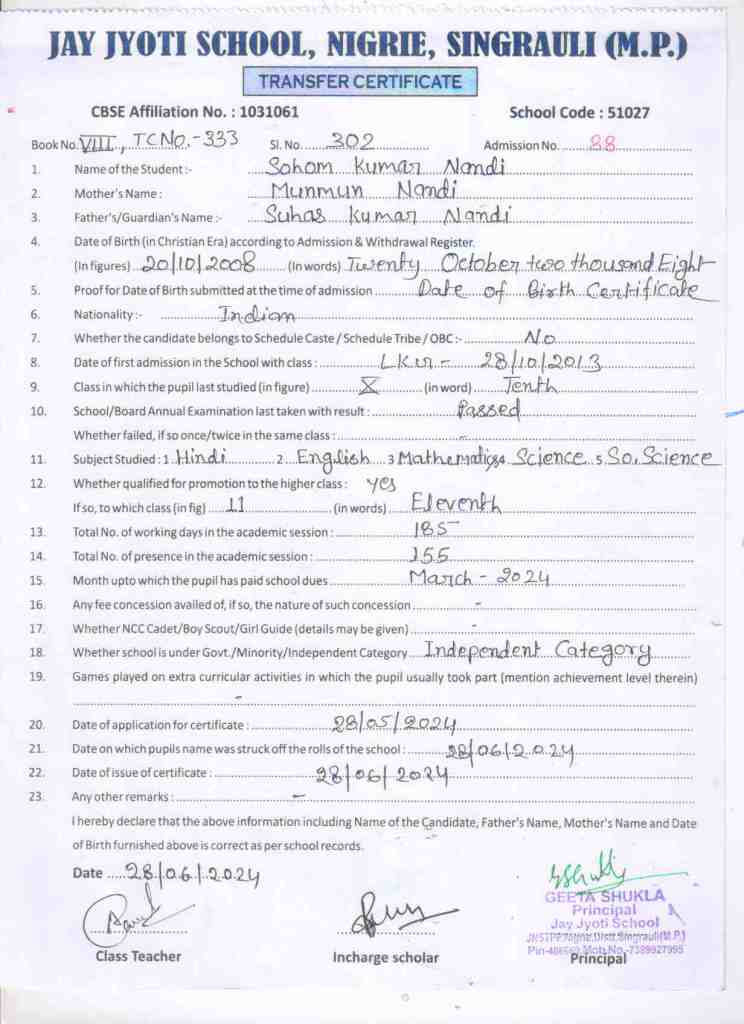 JAY JYOTI SCHOOL, NIGRIE, SINGRAULI (M.P.)
TRANSFER CERTIFICATE
CBSE Affiliation No. : 1031061 School Code : 51027
Book No. VIII, TC No.-333 Sl. No. 302 Admission No. 88
1. Name of the Student :- Sohom Kumar Nandi
2. Mother's Name : Munmun Nandi
3. Father's/Guardian's Name :- Suhas Kumar Nandi
4. Date of Birth (in Christian Era) according to Admission & Withdrawal Register.
(In figures) 20/10/2008 (In words) Twenty October two thousand Eight
5. Proof for Date of Birth submitted at the time of admission Date of Birth Certificate
6. Nationality :- Indian
7. Whether the candidate belongs to Schedule Caste / Schedule Tribe / OBC :- No
8. Date of first admission in the School with class : LKG - 28/10/2013
9. Class in which the pupil last studied (in figure) X (in word) Tenth
10. School/Board Annual Examination last taken with result : Passed
Whether failed, if so once/twice in the same class : -
11. Subject Studied : 1 Hindi 2 English 3 Mathematics 4 Science 5 So. Science
12. Whether qualified for promotion to the higher class : Yes
If so, to which class (in fig) 11 (in words) Eleventh
13. Total No. of working days in the academic session : 185
14. Total No. of presence in the academic session : 155
15. Month upto which the pupil has paid school dues March - 2024
16. Any fee concession availed of, if so, the nature of such concession -
17. Whether NCC Cadet/Boy Scout/Girl Guide (details may be given) -
18. Whether school is under Govt./Minority/Independent Category Independent Category
19. Games played on extra curricular activities in which the pupil usually took part (mention achievement level therein)
-
20. Date of application for certificate : 28/05/2024
21. Date on which pupils name was struck off the rolls of the school : 28/06/2024
22. Date of issue of certificate : 28/06/2024
23. Any other remarks : -
I hereby declare that the above information including Name of the Candidate, Father's Name, Mother's Name and Date
of Birth furnished above is correct as per school records.
Date 28/06/2024
GEETA SHUKLA
Principal
Jay Jyoti School
Class Teacher Incharge scholar Principal